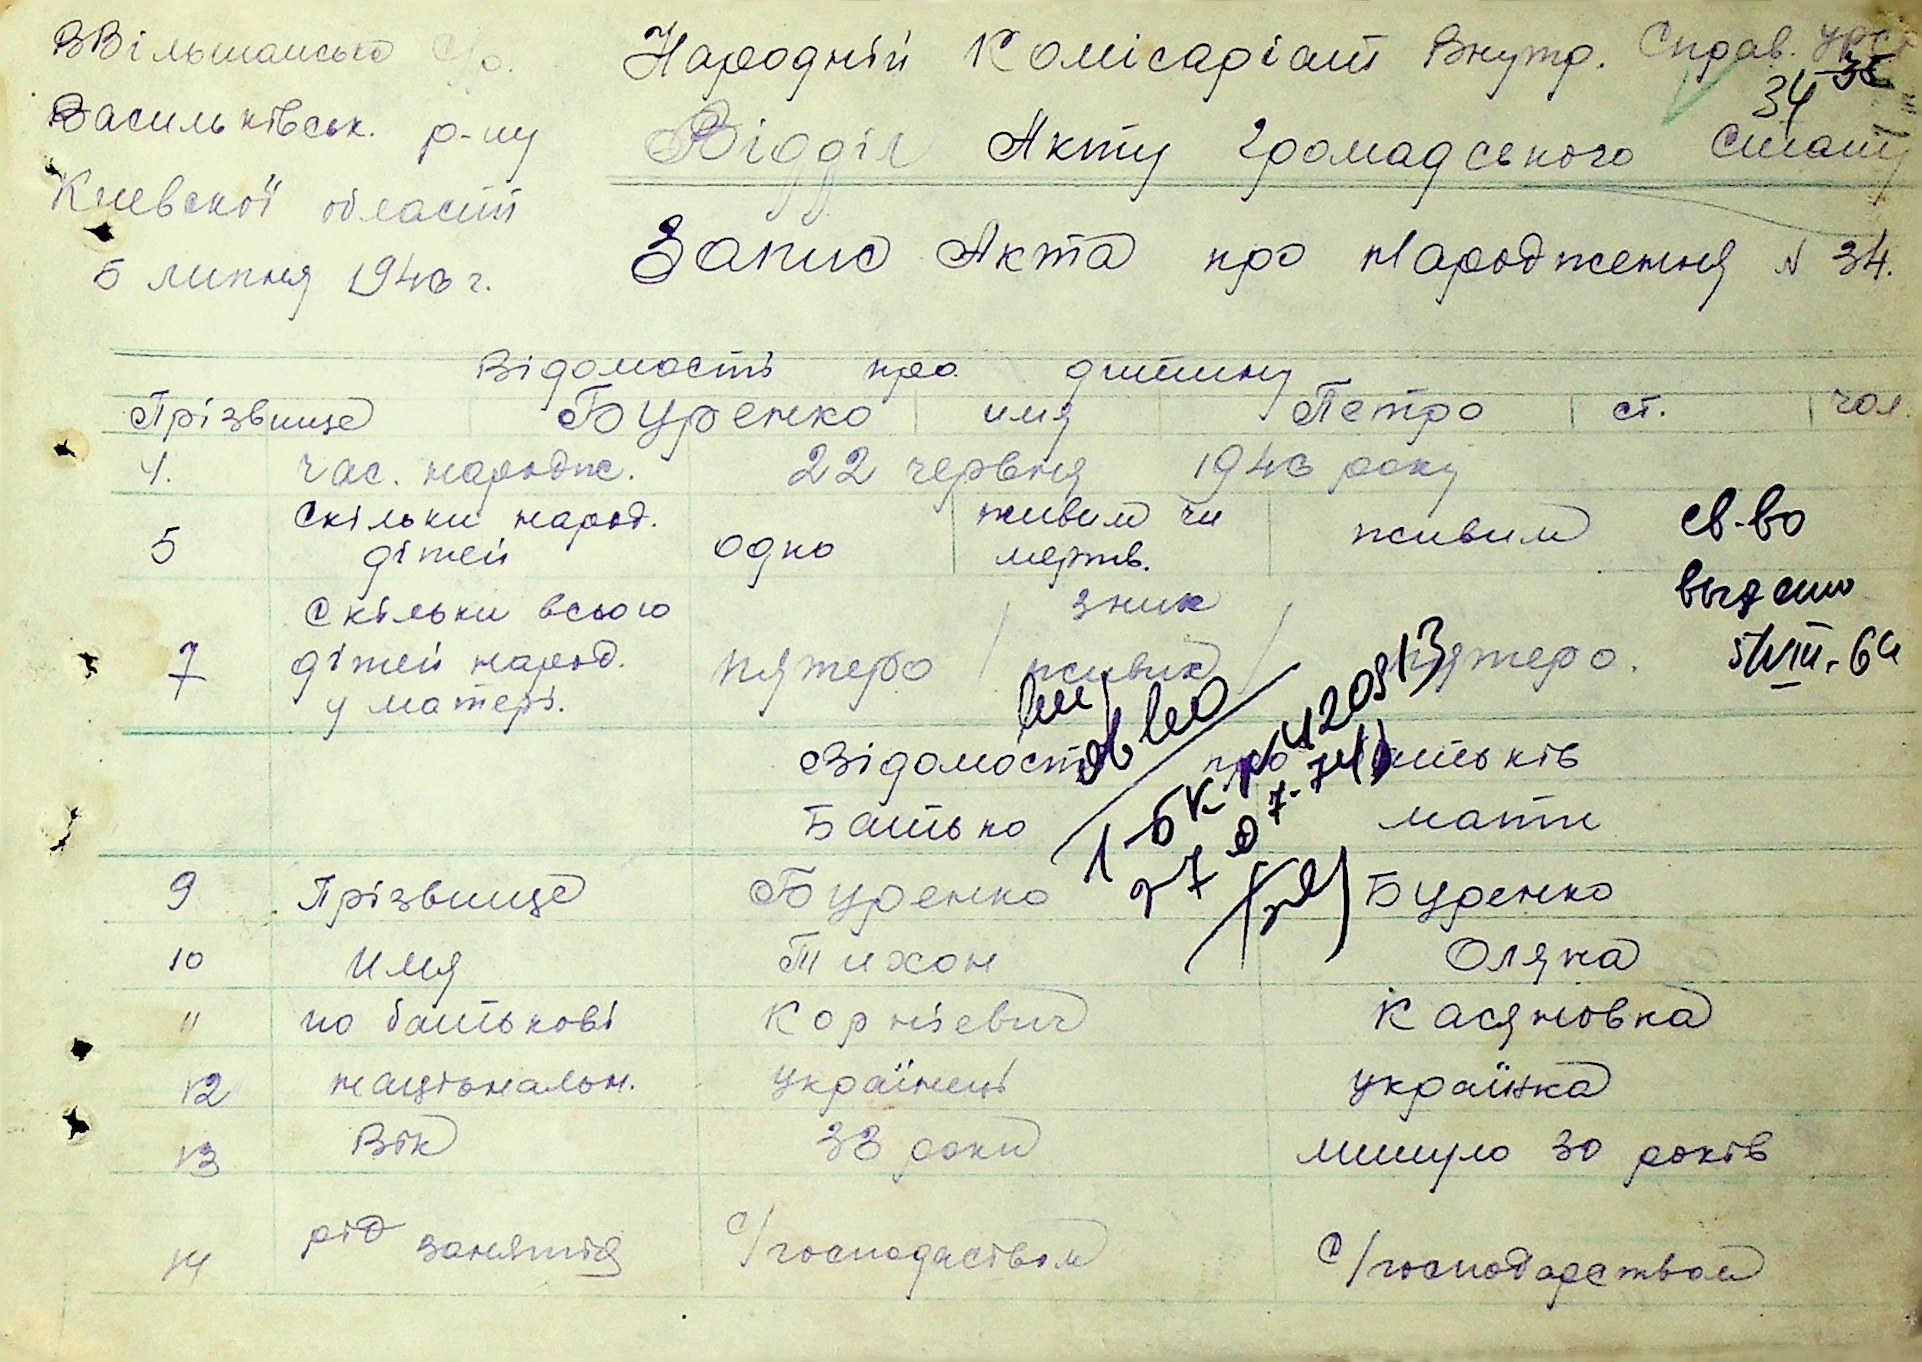 ВВільшанська с/р.
Васильківськ. р-ну
Киевскої області
5 липня 1943 г.
Народній Комісаріат Внутр. Справ. УРСР
34 35
Відділ Акту Громадського Стану
Запис Акта про Народження N 34.
Відомость про дитину
Прізвище Буренко имя Петро ст. чол.
4. час. народж. 22 червня 1943 року
5 Скільки народ. дітей одно живим чи мертв. живим
св-во
выдано
5/VIII-64
7 Скільки всього дітей народ. у матері. пятеро з них живих пятеро.
Відомость про батьків
Батько мати
9 Прізвище Буренко Буренко
10 Имя Тихон Оляна
11 по батькові Корнієвич Касяновна
12 національн. українець українка
13 Вік 33 роки минуло 30 років
14 рід заняття с/господаством с/господарством